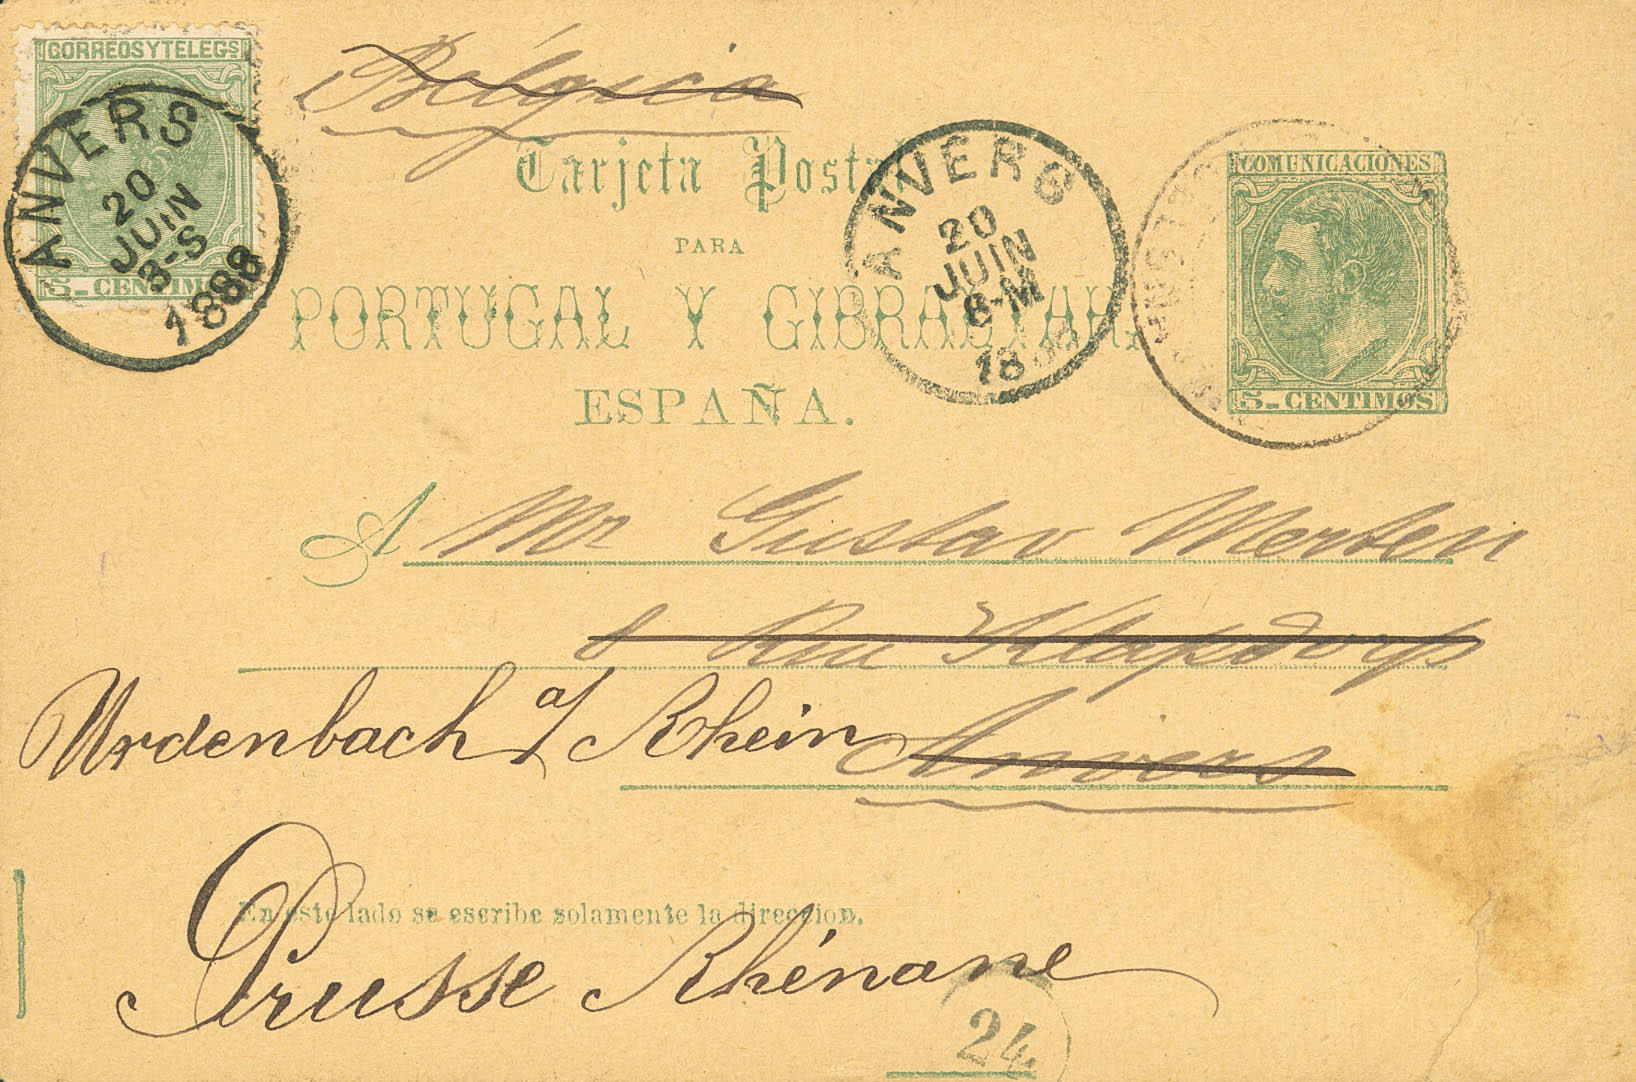 CORREOS Y TELEGS
5- CENTIMOS
ANVERS
20
JUIN
8-S
1888
Bélgica
Tarjeta Postal
PARA
PORTUGAL Y GIBRALTAR.
ESPAÑA.
ANVERS
20
JUIN
6-M
18
COMUNICACIONES
5- CENTIMOS
A Mr Gustav Merten
8 Rue Klapdorp
Anvers
Urdenbach a/ Rhein
En este lado se escribe solamente la direccion.
Prusse Rhénane
24